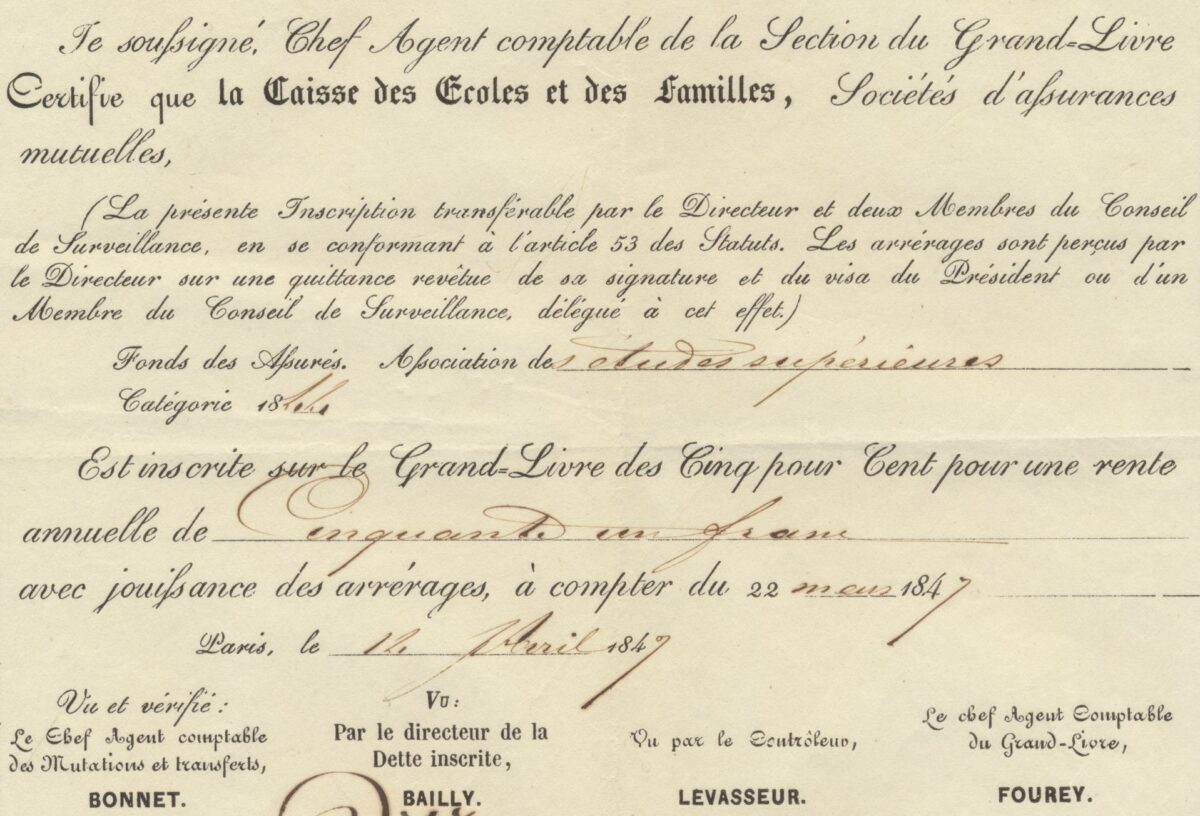 Je soussigné, Chef Agent comptable de la Section du Grand-Livre
Certifie que la Caisse des Ecoles et des Familles, Sociétés d'assurances
mutuelles,
(La présente Inscription transférable par le Directeur et deux Membres du Conseil
de Surveillance, en se conformant à l'article 53 des Statuts. Les arrérages sont perçus par
le Directeur sur une quittance revêtue de sa signature et du visa du Président ou d'un
Membre du Conseil de Surveillance, délégué à cet effet.)
Fonds des Assurés. Association des études supérieures
Catégorie 1844
Est inscrite sur le Grand-Livre des Cinq pour Cent pour une rente
annuelle de Cinquante un franc
avec jouissance des arrérages, à compter du 22 mars 1847
Paris, le 12 Avril 1847
Vu et vérifié :
Le Chef Agent comptable
des Mutations et transferts,
BONNET.
Vu:
Par le directeur de la
Dette inscrite,
BAILLY.
Vu par le Contrôleur,
LEVASSEUR.
Le chef Agent Comptable
du Grand-Livre,
FOUREY.